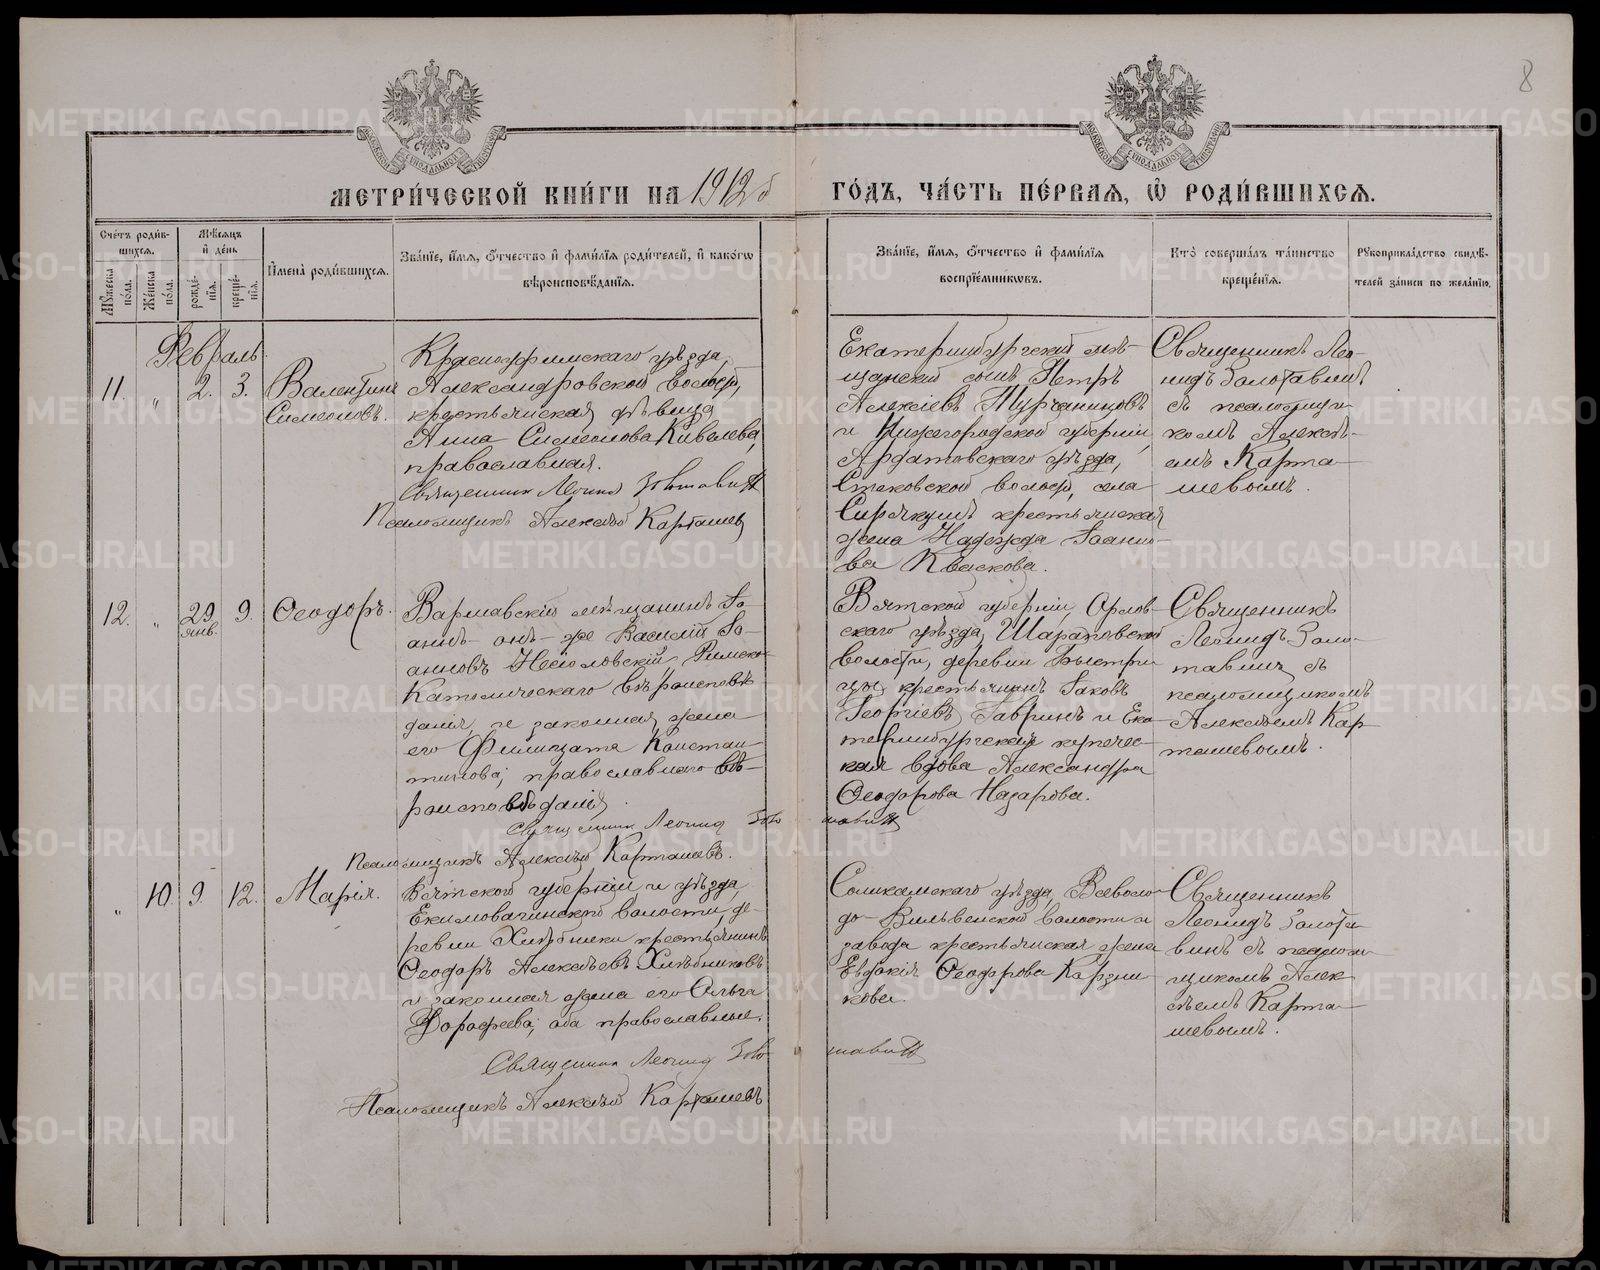 8
МЕТРИЧЕСКОЙ КНИГИ НА 1912й ГОДЪ, ЧАСТЬ ПЕРВАЯ, Ѡ РОДИВШИХСЯ.
Счетъ родившихся.
Мужеска пола.
Женска пола.
Мѣсяцъ и день
рожденія.
крещенія.
Имена родившихся.
Званіе, имя, отчество и фамилія родителей, и какогѡ вѣроисповѣданія.
Званіе, имя, отчество и фамилія воспріемниковъ.
Кто совершалъ таинство крещенія.
Рукоприкладство свидѣтелей записи по желанію.
Февраль.
11. „ 2. 3.
Валентинъ
Симеоновъ.
Красноуфимскаго уѣзда,
Александровской волости,
крестьянская дѣвица
Анна Симеонова Кивелева,
православная.
Священник Леонид Золотавин
Псаломщикъ Алексѣй Карташев
Екатеринбургский мѣ-
щанский сынъ Петръ
Алексіевъ Турчаниновъ
и Нижегородской губерніи
Ардатовскаго уѣзда,
волости, села
крестьянская
жена Надежда Іоанно-
ва Кваскова.
Священникъ Лео-
нидъ Золотавинъ
съ псаломщи-
комъ Алексѣ-
емъ Карта-
шевымъ.
12. „ 29 янв. 9.
Ѳеодоръ.
Варшавскій мѣщанинъ Іо-
аннъ онъ-же Василій Іо-
анновъ Несіоловскій, Римско-
Католическаго вѣроисповѣ-
данія, и законная жена
его Филицата Констан-
тинова, православнаго вѣ-
роисповѣданія.
Священник Леонид Золотавин
Псаломщикъ Алексѣй Карташевъ.
Вятской губерніи, Орлов-
скаго уѣзда, Шараповской
волости, деревни Быстри-
цы крестьянинъ Іаковъ
Георгіевъ Гавринъ и Ека-
теринбургская купечес-
кая вдова Александра
Ѳеодорова Назарова.
Священникъ
Леонидъ Золо-
тавинъ съ
псаломщикомъ
Алексѣемъ Кар-
ташевымъ.
„ 10. 9. 12.
Марія.
Вятской губерніи и уѣзда,
Екимовагинской волости, де-
ревни Хлѣбники крестьянинъ
Ѳеодоръ Алексѣевъ Хлѣбниковъ
и законная жена его Ольга
Дорофеева; оба православные.
Священник Леонид Золотавин
Псаломщикъ Алексѣй Карташевъ
Соликамскаго уѣзда, Всеволо-
до-Вильвенской волости и
завода крестьянская жена
Евдокія Ѳеодорова Карзни-
кова.
Священникъ
Леонидъ Золота-
винъ съ псалом-
щикомъ Алек-
сѣемъ Карта-
шевымъ.
METRIKI.GASO-URAL.RU